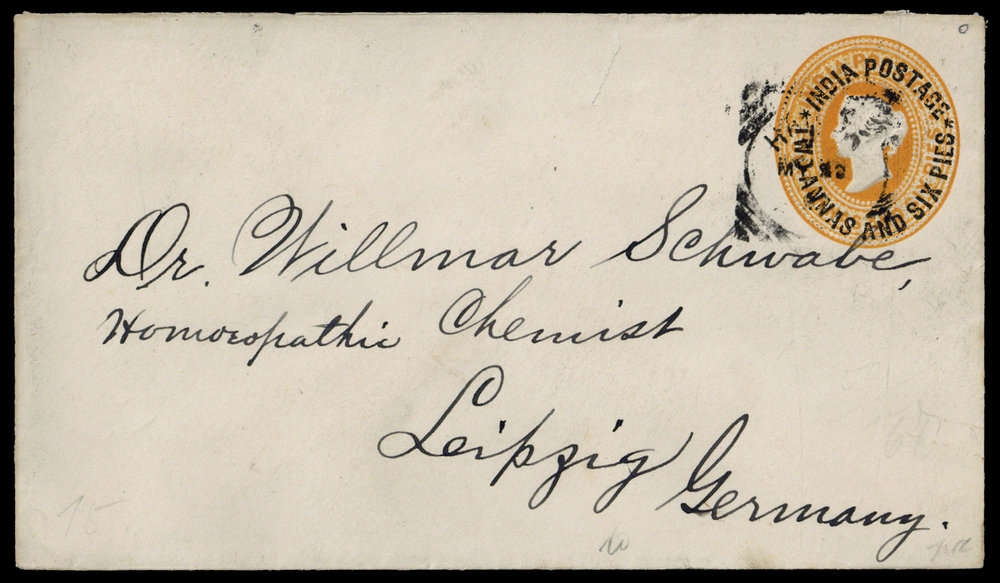 INDIA POSTAGE
TWO ANNAS AND SIX PIES
Dr. Willmar Schwabe,
Homoeopathic Chemist
Leipzig Germany.